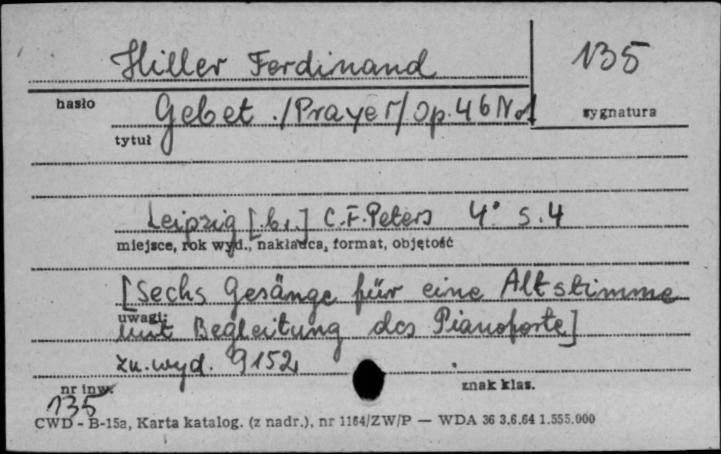 Hiller Ferdinand 135
hasło
Gebet ./Prayer/ Op.46 No1
sygnatura
tytuł
Leipzig [b.r.] C.F.Peters 4° s.4
miejsce, rok wyd., nakładca, format, objętość
[Sechs Gesänge für eine Altstimme
uwagi:
mit Begleitung des Pianoforte]
zn.wyd. 9152
nr inw. znak klas.
135
CWD - B-15a, Karta katalog. (z nadr.), nr 1164/ZW/P — WDA 36 3.6.64 1.555.000